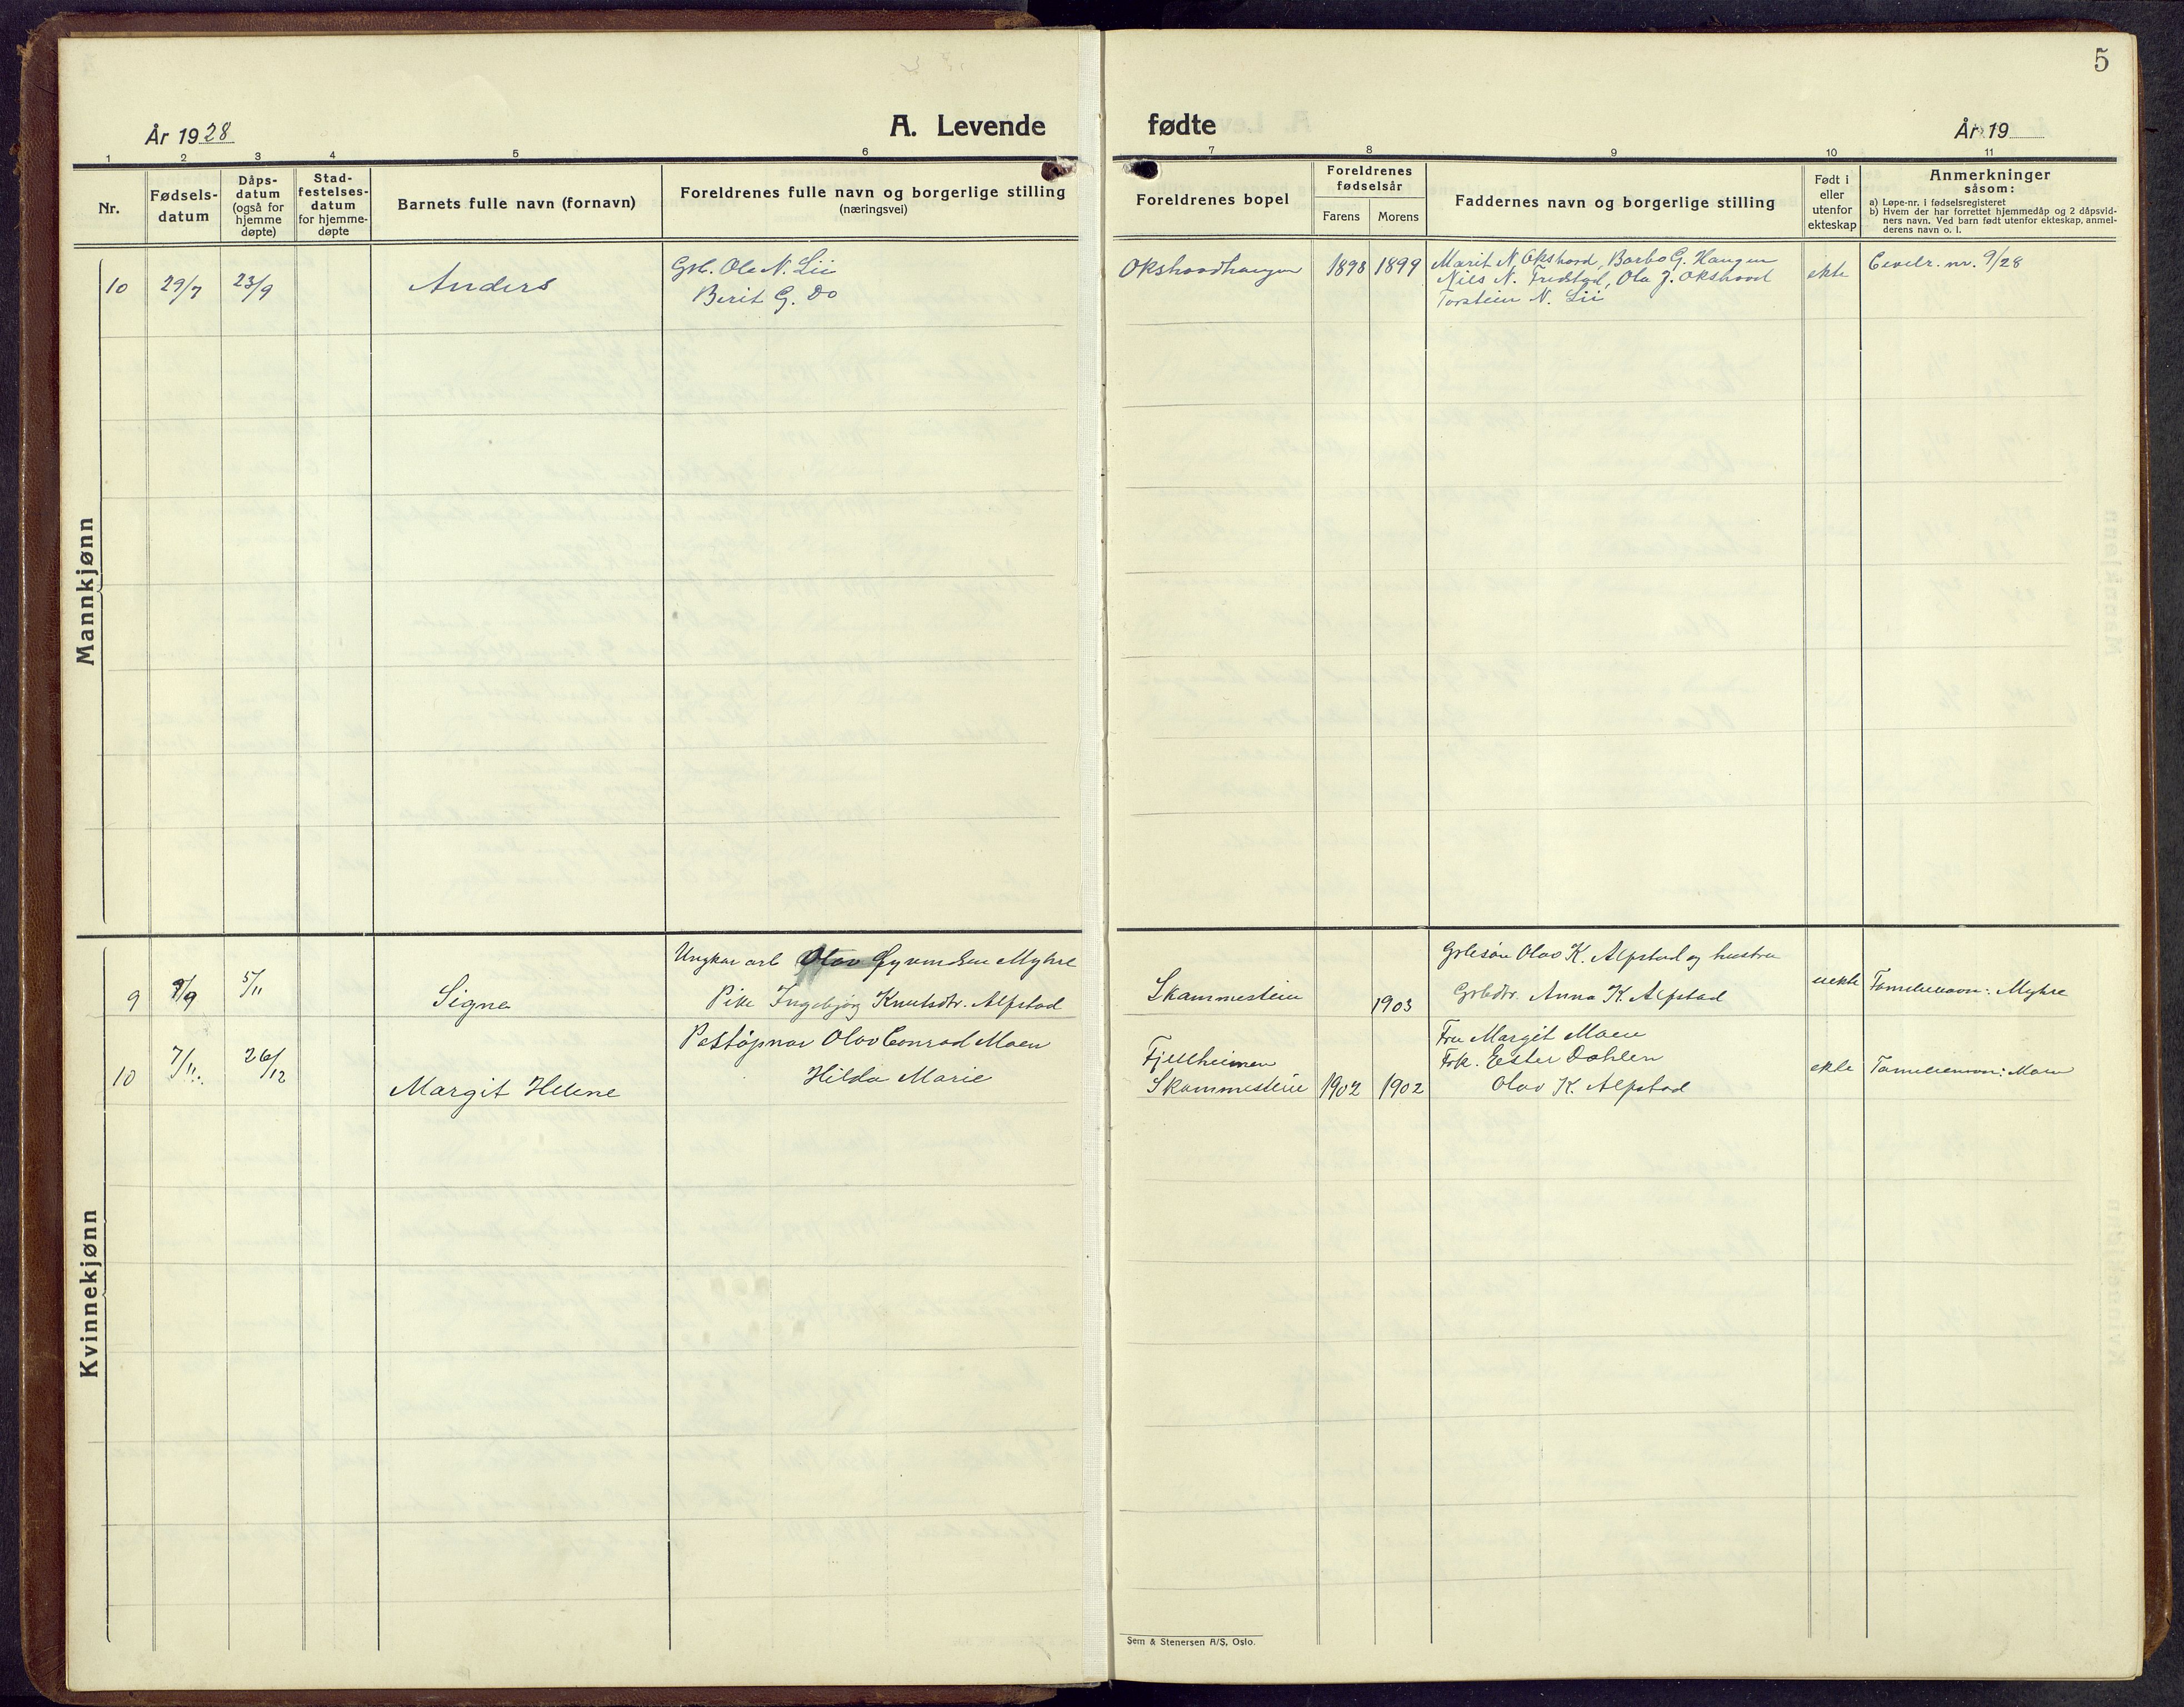 5
År 1928
A. Levende
fødte
År 19
1 2 3 4 5 6 7 8 9 10 11
Nr.
Fødsels-
datum
Dåps-
datum
(også for
hjemme
døpte)
Stad-
festelses-
datum
for hjemme-
døpte
Barnets fulle navn (fornavn)
Foreldrenes fulle navn og borgerlige stilling
(næringsvei)
Foreldrenes bopel
Foreldrenes
fødselsår
Farens
Morens
Faddernes navn og borgerlige stilling
Født i
eller
utenfor
ekteskap
Anmerkninger
såsom:
a) Løpe-nr. i fødselsregisteret
b) Hvem der har forrettet hjemmedåp og 2 dåpsvid-
ners navn. Ved barn født utenfor ekteskap, anmel-
derens navn o. l.
Mannkjønn
10 29/7 23/9 Anders
Grb. Ole N. Lii
Berit G. Do
Okshovdhaugen 1898 1899
Marit N. Okshovd, Barbo G. Haugen
Nils N. Fredstad, Ola J. Okshovd
Torstein N. Lii
ekte
9/28
Kvinnekjønn
9 9/9 5/11 Signe
Ungkar arb Olav Øyvindsen Myhre
Pike Ingebjørg Knutsdtr. Alfstad
Skammestein 1903
Grbesøn Olav K. Alfstad og hustru
Grbdtr. Anna K. Alfstad
uekte
Familienavn: Myhre
10 7/11 26/12 Margit Helene
Poståpner Olav Conrad Moen
Hilda Marie
Fjellheimen
Skammestein 1902 1902
Fru Margit Moen
Frk. Ester Dahlen
Olav K. Alfstad
ekte
Familienavn: Moen
Sem & Stenersen A/S, Oslo.